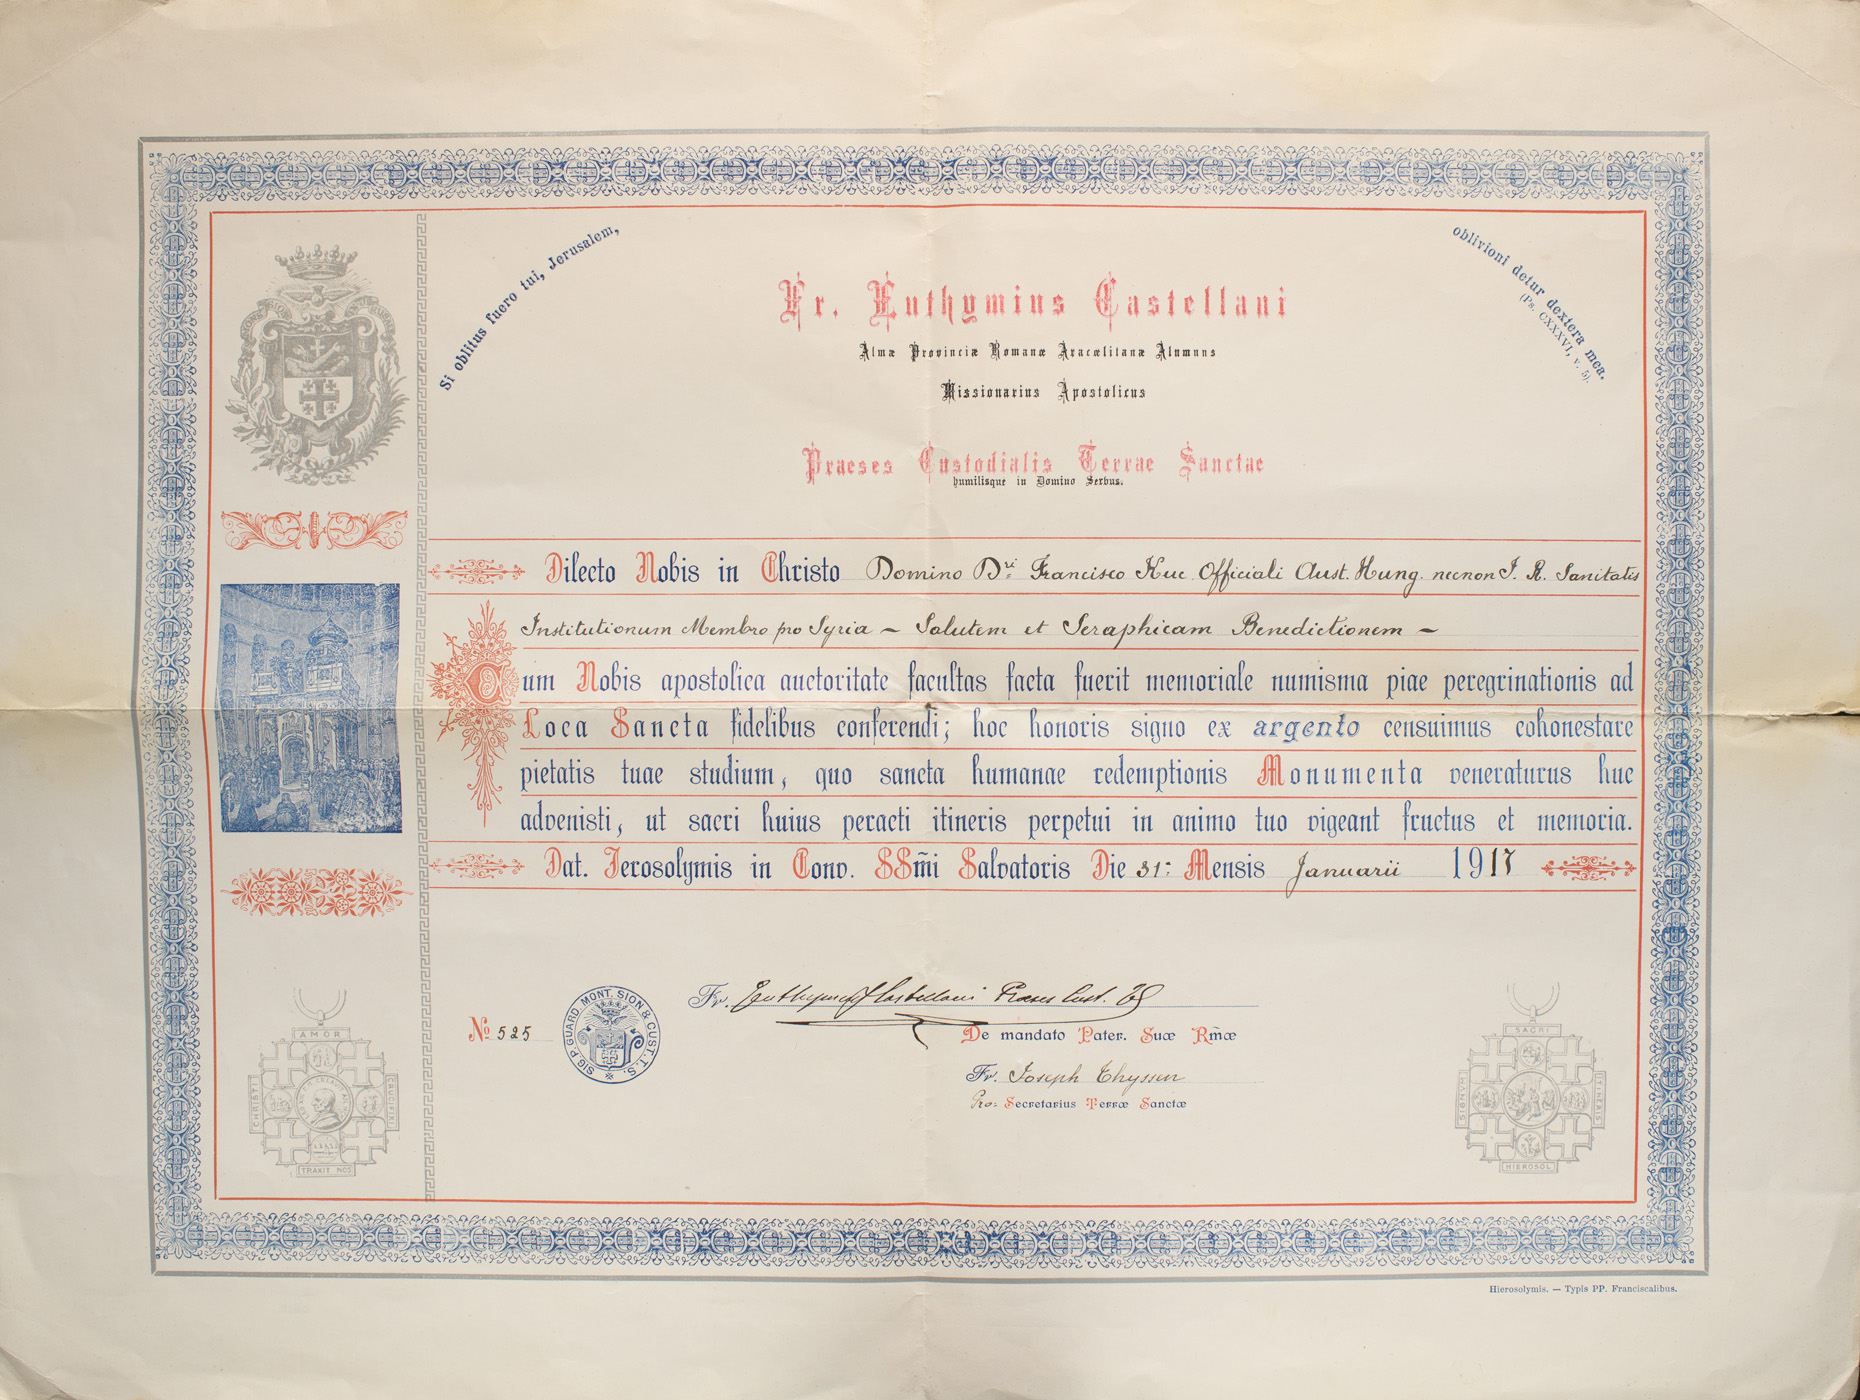 Si oblitus fuero tui, Jerusalem,
oblivioni detur dextera mea.
(Ps. CXXXVI, v. 5).
Fr. Euthymius Castellani
Almæ Provinciæ Romanæ Aracœlitanæ Alumnus
Missionarius Apostolicus
Praeses Custodialis Terrae Sanctae
humilisque in Domino Servus.
Dilecto Nobis in Christo Domino Dri Francisco Kuc Officiali Aust. Hung. necnon I. R. Sanitatis
Institutionum Membro pro Syria – Salutem et Seraphicam Benedictionem –
Cum Nobis apostolica auctoritate facultas facta fuerit memoriale numisma piae peregrinationis ad
Loca Sancta fidelibus conferendi; hoc honoris signo ex argento censuimus cohonestare
pietatis tuae studium, quo sancta humanae redemptionis Monumenta veneraturus huc
advenisti, ut sacri huius peracti itineris perpetui in animo tuo vigeant fructus et memoria.
Dat. Ierosolymis in Conv. SSm̃i Salvatoris Die 31: Mensis Januarii 1917
Fr. Euthymius Castellani Praeses Cust. TS
No 525
SIG. P. GUARD. MONT. SION & CUST. T. S.
De mandato Pater. Suæ Rm̃æ
Fr. Joseph Thyssen
Pro: Secretarius Terræ Sanctæ
AMOR
CHRISTI
CRUCIFIXI
TRAXIT NOS
SACRI
SIGNUM
ITINERIS
HIEROSOL
Hierosolymis. — Typis PP. Franciscalibus.